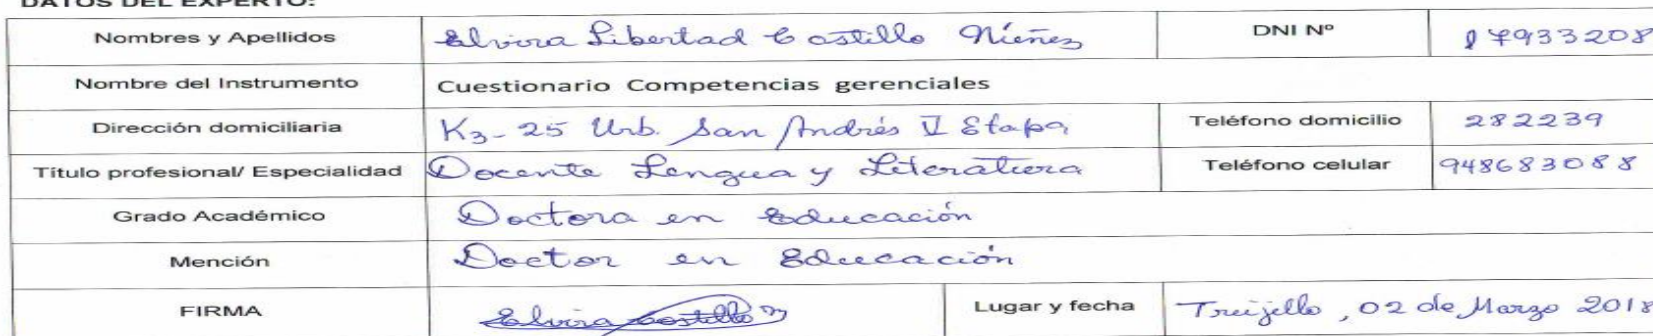 DATOS DEL EXPERTO:
Nombres y Apellidos Elvira Libertad Castillo Núñez DNI Nº 17933208
Nombre del Instrumento Cuestionario Competencias gerenciales
Dirección domiciliaria K3-25 Urb. San Andrés V Etapa Teléfono domicilio 282239
Título profesional/ Especialidad Docente Lengua y Literatura Teléfono celular 948683088
Grado Académico Doctora en Educación
Mención Doctor en Educación
FIRMA Elvira Castillo N Lugar y fecha Trujillo, 02 de Marzo 2018